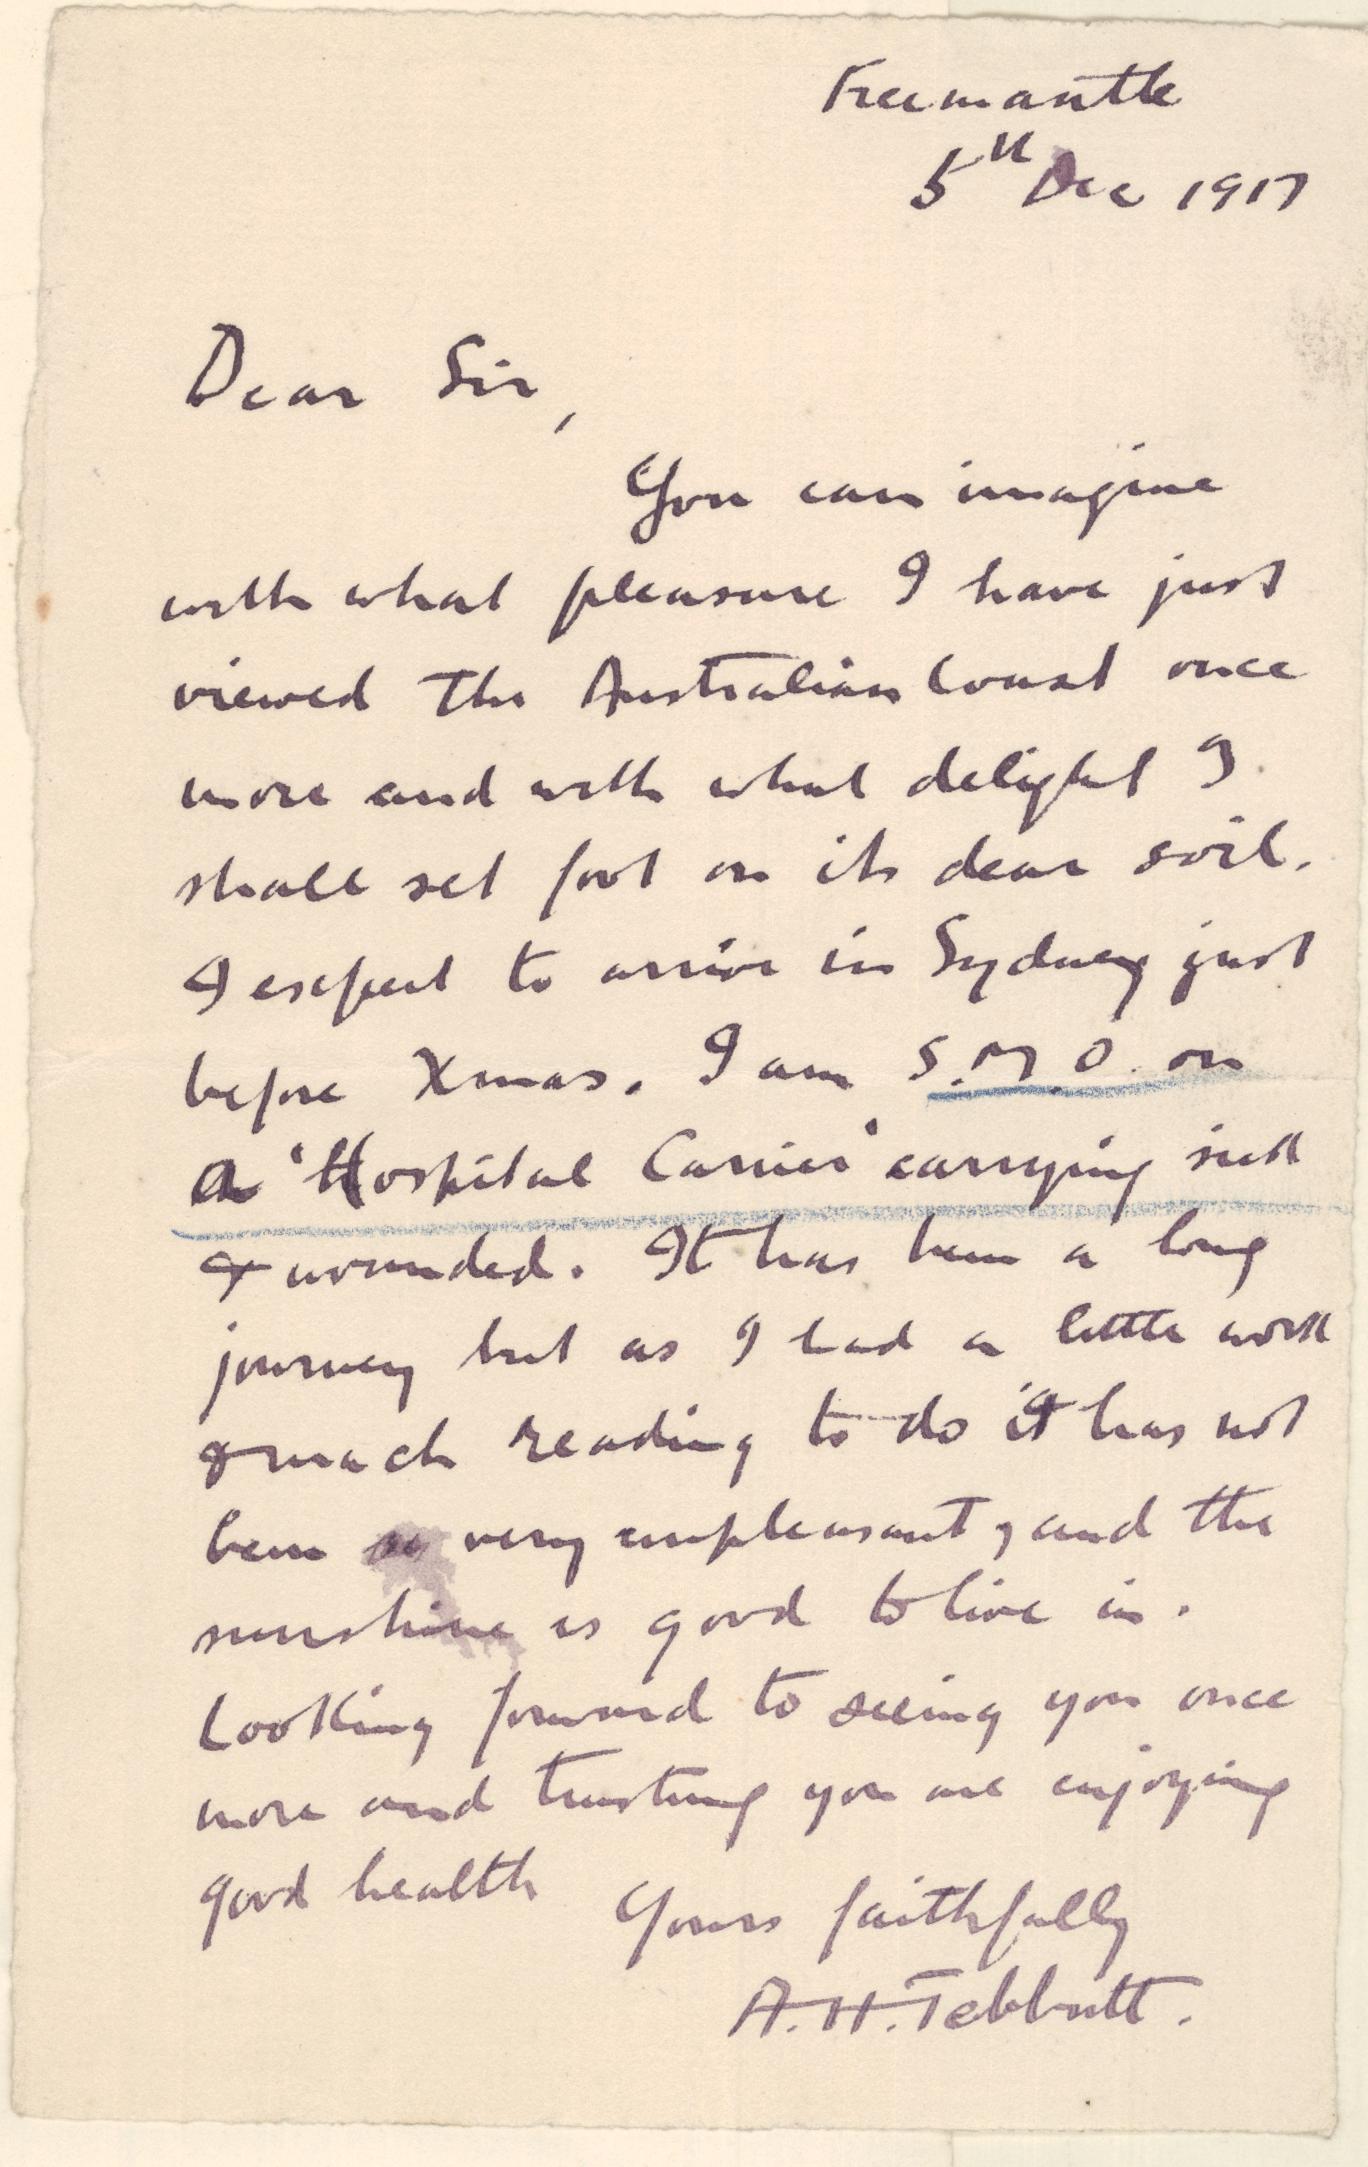 Fremantle
5th Dec 1917
Dear Sir,
You can imagine
with what pleasure I have just
viewed the Australian Coast once
more and with what delight I
shall set foot on its dear soil.
I expect to arrive in Sydney just
before Xmas. I am S.M.O. on
a 'Hospital Carrier' carrying sick
& wounded. It has been a long
journey but as I had a little work
& much reading to do it has not
been very unpleasant, and the
sunshine is good to live in.
Looking forward to seeing you once
more and trusting you are enjoying
good health
Yours faithfully
A.H. Tebbutt.